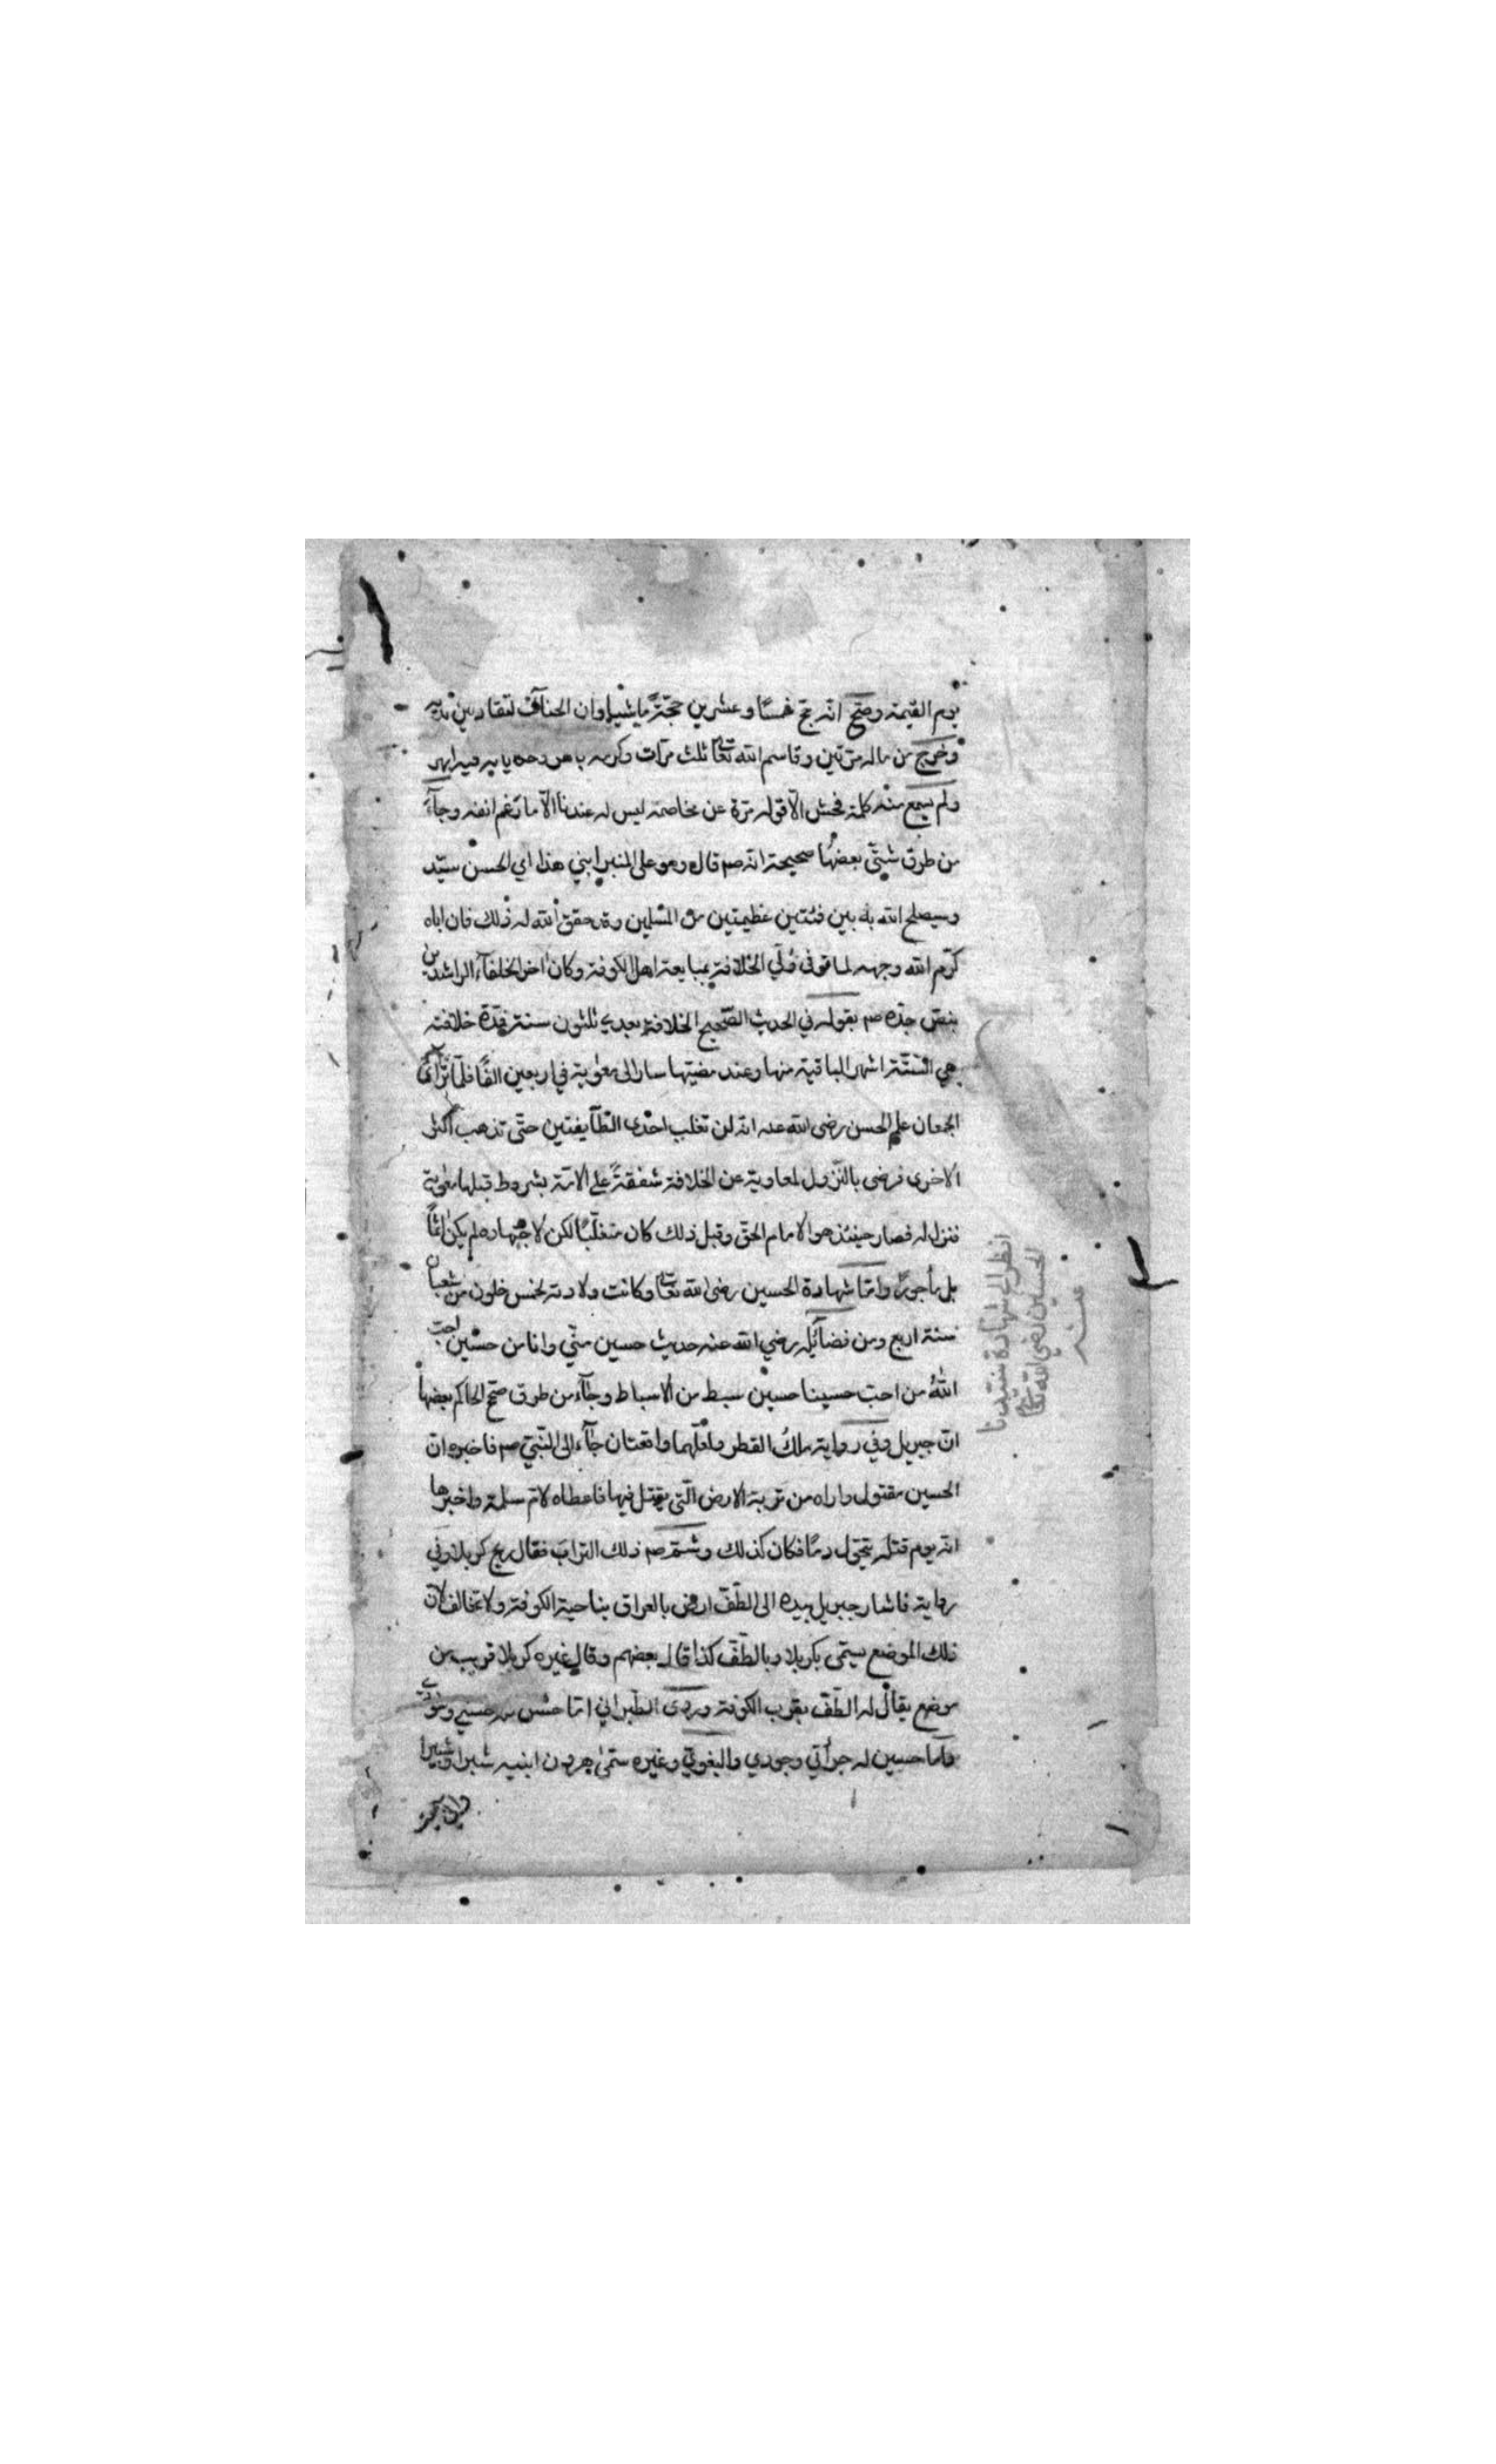 يوم القيمة وصح انه حج خمسًا وعشرين حجّة ماشيا وان الجنائب لتقاد بين يديه
وخرج من ماله مرتين وقاسم الله تعا ثلث مرات وكرمه
ولم يسمع منه كلمة فحش الّا قوله مرة عن مخاصمه ليس له عندنا الّا ما رغم انفه وجآء
من طرق شتّى بعضها صحيحة انه صم قال وهو على المنبر ابني هذا اي الحسن سيّد
وسيصلح الله به بين فئتين عظيمتين من المسلمين وقد حقق الله له ذلك فان اباه
كرّم الله وجهه لما توفى وُلّي الخلافة بمبايعة اهل الكوفة وكان اخر الخلفآء الراشدين
بنصّ جدّه صم بقوله في الحديث الصّحيح الخلافة بعدي ثلثون سنة فمدّة خلافته
هي الستّة اشهر الباقية منها وعند مضيّها سار الى معوية في اربعين الفًا فلمّا ترآئ
الجمعان علم الحسن رضى الله عنه انه لن تغلب احدى الطّآيفتين حتّى تذهب اكثر
الاخرى فرضى بالنّزول لمعاوية عن الخلافة شفقةً على الامّة بشروط قبلها معوية
فنزل له فصار حينئذ هو الامام الحقّ وقبل ذلك كان متغلّبًا لكن لاجتهاده لم يكن اثمًا
بل مأجورًا وامّا شهادة الحسين رضى الله تعا وكانت ولادته لخمس خلون من شعبان
سنة اربع ومن فضآئله رضي الله عنه حديث حسين منّي وانا من حسين احبّ
اللهُ من احبّ حسينا حسين سبط من الاسباط وجآء من طرق صحّح الحاكم بعضها
انّ جبريل وفي رواية ملك القطر ولعلّهما واقعتان جآء الى النّبيّ صم فاخبره انّ
الحسين مقتول واراه من تربة الارض الّتي يقتل فيها فاعطاه لامّ سلمة واخبرها
انّه يوم قتله يتحوّل دمًا فكان كذلك وشمّه صم ذلك التراب فقال ريح كربلا وفي
رواية فاشار جبريل بيده الى الطّفّ ارض بالعراق بناحية الكوفة ولا تخالف لانّ
ذلك الموضع يسمّى بكربلا وبالطّفّ كذا قال بعضهم وقال غيره كربلا قريب من
موضع يقال له الطّفّ بقرب الكوفة وروى الطّبراني امّا حسن
وامّا حسين له جرأتي وجودي والبغويّ وغيره سمّى هرون ابنيه شبرا وشبيرا
انظر الى شهادة سيّدنا
الحسين رضي الله تعا
عنه